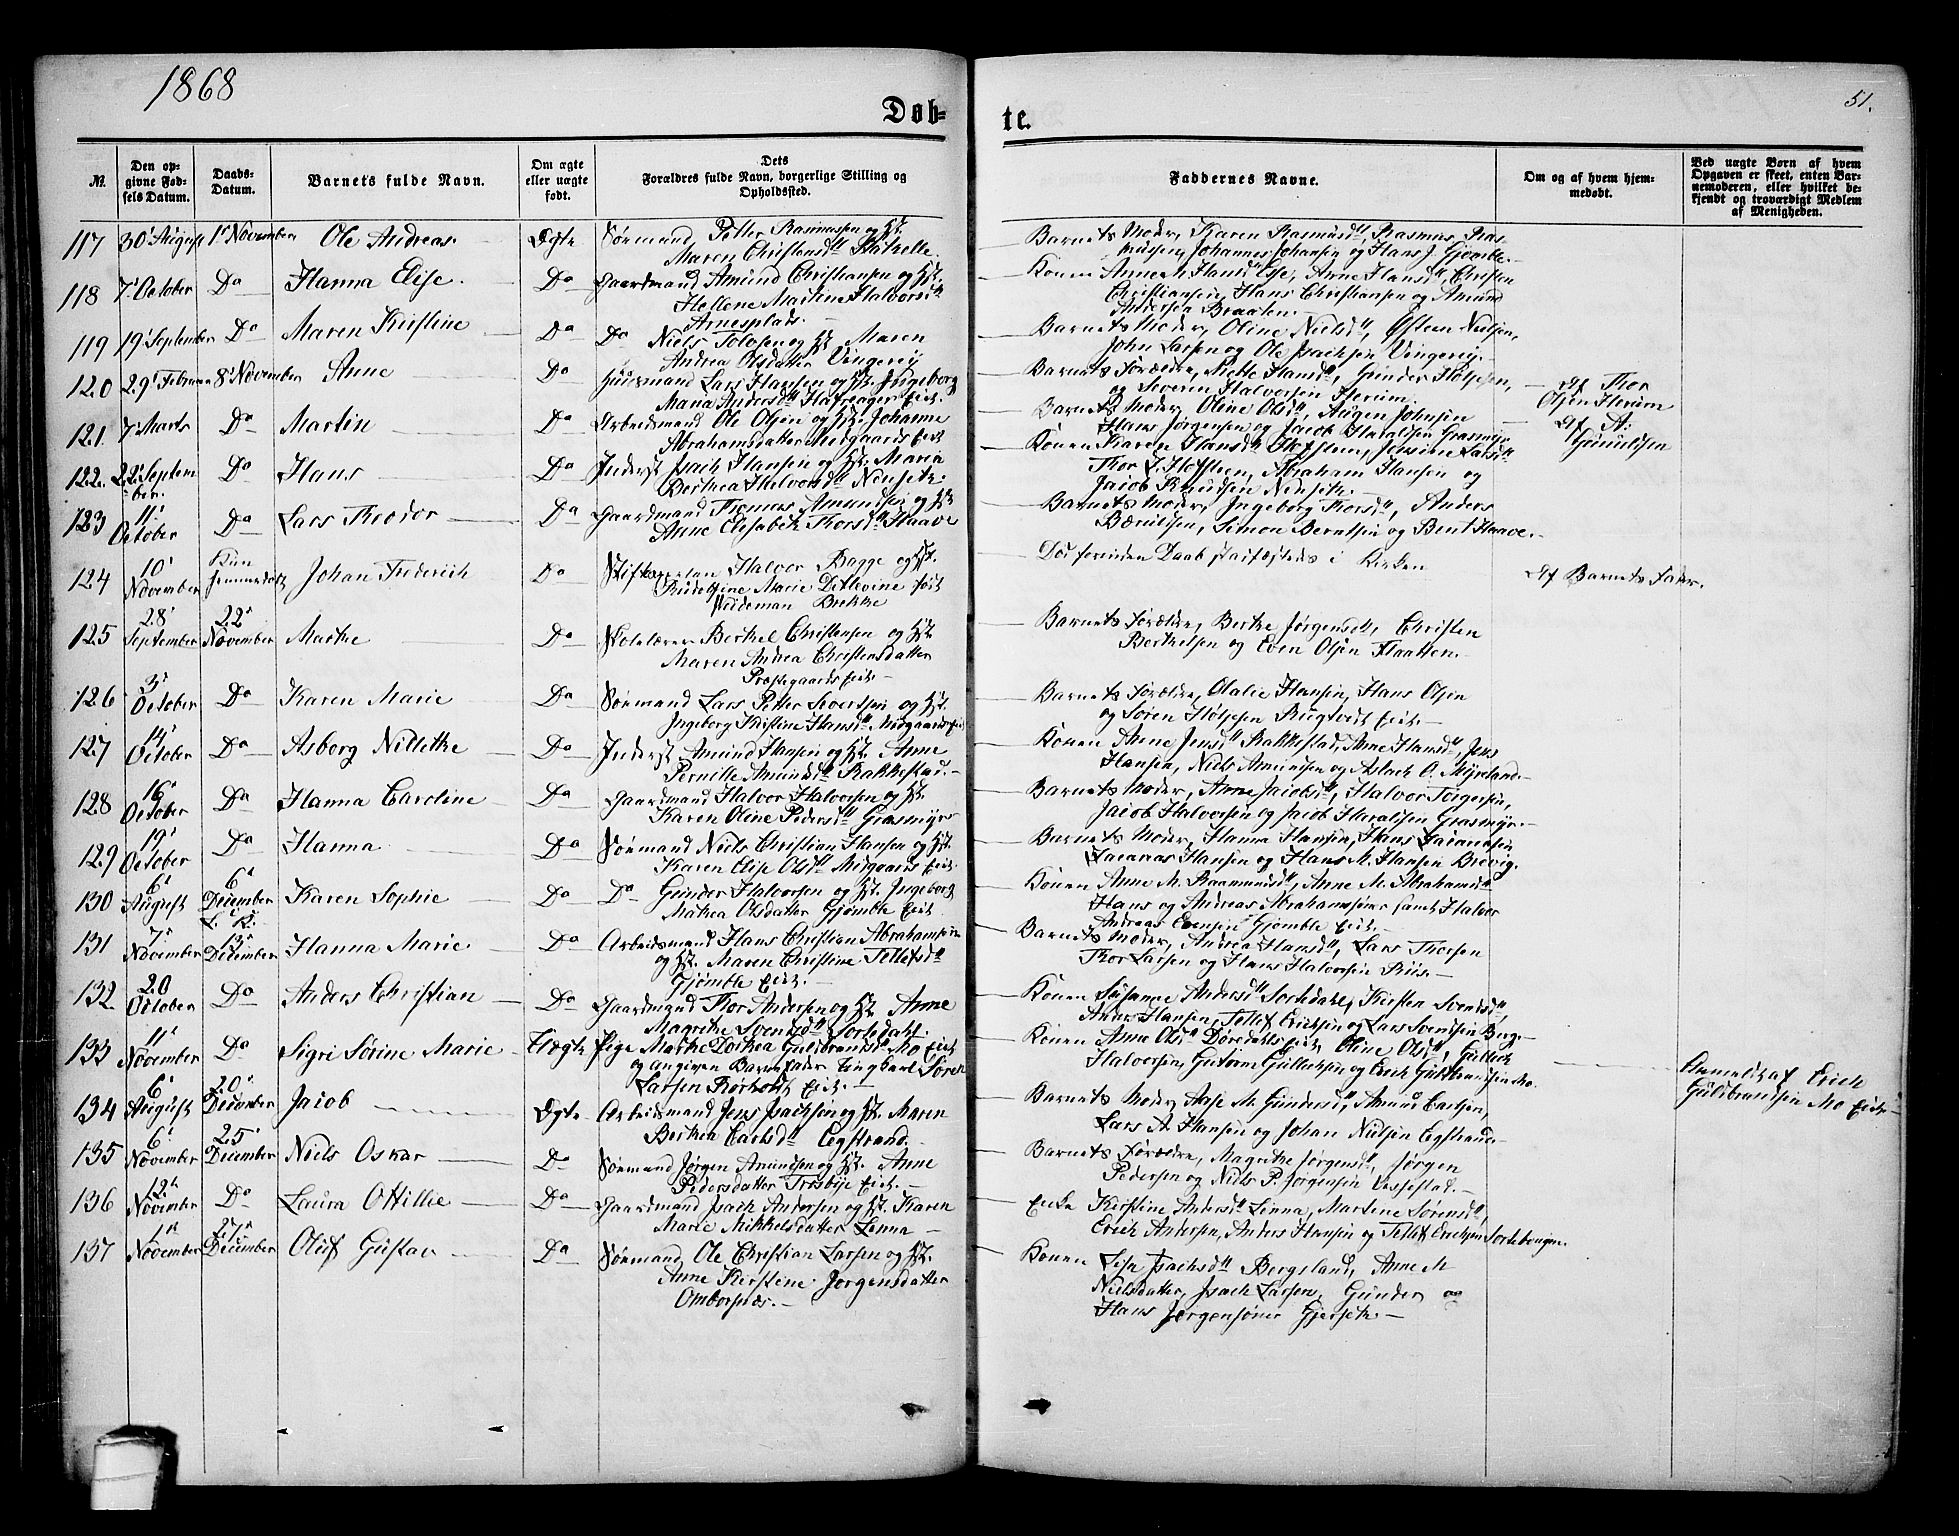 1868
Døb-
te.
51.
№.
Den op-
givne Fød-
sels Datum.
Daabs-
Datum.
Barnets fulde Navn.
Om ægte
eller uægte
født.
Dets
Forældres fulde Navn, borgerlige Stilling og
Opholdssted.
Faddernes Navne.
Om og af hvem hjem-
medøbt.
Ved uægte Børn af hvem
Opgaven er skeet, enten Bar-
nemoderen, eller hvilket be-
kjendt og troværdigt Medlem
af Menigheden.
117 30' August 1' November Ole Andreas. Ægte Sømand Petter Rasmussen og H.
Maren Christensd.
Barnets Moder, Karen Rasmusd., Rasmus Ras-
mussen, Johannes Johansen og Hans J. Gjømle.
118 7' October Do Hanna Elise. Do Gaardmand Amund Christiansen og H.
Hellene Martine Halvorsd.
Arnesplads.
Konen Anne M. Hansd. Eise, Anne Hansd., Christen
Christiansen, Hans Christiansen og Amund
Andersen Braaten.
119 19' September Do Maren Kirstine Do Do Niels Tolosen og H. Maren
Andrea Olsdatter Vingereiy
Barnets Moder, Oline Nielsd., Østen Nielsen,
John Larsen og Ole Isachsen Vingereiy.
120 29' Februar 8' November Anne Do Huusmand Lars Hansen og H. Ingeborg
Maria Andersd. Hafsager Eiet.
Barnets Forældre, Mette Hansd., Gunder Høljesen,
og Severin Halvorsen Herum.
Af Thor
Olsen Herum
121. 7' Marts Do Martin Do Arbeidsmand Ole Olsen og H. Johanne
Abrahamsdatter Midgaards Eiet
Barnets Moder, Oline Olsd., Augen Johnsen
Hans Jørgensen og Jacob Haraldsen Grasmyr
Af A.
Gunulfsen
122. 22' Septem
ber. Do Hans Do Inderst Isach Hansen og H. Maria
Berthea Halvorsd. Nensete.
Konen Karen Hansd. Hofsteen, Jensine Larsd.
Thor L. Hofsteen, Abraham Hansen og
Jacob Knudsen Nensete.
123 11'
October Do Lars Theodor Do Gaardmand Thomas Amundsen og H.
Anne Elisabeth Thorsd. Haave
Barnets Moder, Ingeborg Thorsd., Anders
Berntsen, Simon Berntsen og Bent Haave.
124 10'
November Kun
hjemmedøbt Johan Frederich Do Halvor Bagge og H.
Marie Ditlevine født
Brekke
Døde forinden Daab stadfæstedes i Kirken
Af Barnets Fader.
125 28'
September 22'
November Marthe Do Skolelærer Berthel Christensen og H.
Maren Andrea Christensdatter
Præstegaards Eiet.
Barnets Forældre, Berthe Jørgensd., Christen
Berthelsen og Even Olsen Flaatten.
126 3'
October Do Karen Marie Do Sømand Lars Petter Severtsen og H.
Ingeborg Kristine Hansd. Midgaards Eiet
Barnets Forældre, Olalie Hansen, Hans Olsen
og Søren Høljesen Rugtvedt Eiet.
127 14'
October Do Asborg Nillethe Do Inderst Amund Hansen og H. Anne
Pernille Amundsd. Rakkestad.
Konen Anne Jensd. Rakkestad, Anne Hansd., Jens
Hansen, Niels Amundsen og Aslach O. Myreland.
128 16'
October Do Hanna Caroline Do Gaardmand Halvor Halvorsen og H.
Karen Oline Pedersd. Grasmyr
Barnets Moder, Anne Jacobsd., Halvor Torgersen,
Jacob Halvorsen og Jacob Haraldsen Grasmyr.
129 19'
October Do Hanna Do Sømand Niels Christian Hansen og H.
Karen Elise Olsd. Midgaards Eiet.
Barnets Moder, Hanna Hansen, Hans Zacariasen
Zacarias Hansen og Hans M. Hansen Brevig.
130 6'
August 6'
December
Karen Sophie Do Do Gunder Halvorsen og H. Ingeborg
Mathea Olsdatter Gjømle Eiet.
Konen Anne M. Raamundsd., Anne M. Abrahamsd.
Hans og Andreas Abrahamsønner samt Halvor
Andreas Evensen Gjømle Eiet.
131 7'
November 13'
December Hanna Marie Do Arbeidsmand Hans Christian Abrahamsen
og H. Maren Christine Tellefsd.
Gjømle Eiet.
Barnets Moder, Andrea Hansd., Lars Thorsen
Thor Larsen og Hans Halvorsen Riis.
132 20
October Do Anders Christian Do Gaardmand Thor Andersen og H. Anne
Magrethe Svendsd. Sortedahl.
Konen Susanne Andersd. Sortedahl, Kirsten Svendsd.
Anders Hansen, Tellef Erichsen og Lars Svendsen Berg.
133 11'
November Do Sigri Sørine Marie Uægte Pige Marthe Dorthea Guldbrandsd. Mo Eiet
og angiven Barnefader Ungkarl Søren
Larsen Rørholt Eiet.
Konen Anne Olsd. Døredals Eiet, Oline Olsd., Gullich
Halvorsen, Gustav Gullichsen og Erich Guldbrandsen Mo.
Anmeldt af Erich
Guldbrandsen Mo Eiet.
134 6'
August 20'
December Jacob Ægte Arbeidsmand Jens Isachsen og H. Maren
Berthea Carlsd. Eegstrand.
Barnets Moder, Aase M. Gundersd., Amund Carlsen,
Lars A. Hansen og Johan Nielsen Eegstrand.
135 6'
November 25'
December Niels Oskar Do Sømand Jørgen Amundsen og H. Anne
Pedersdatter Trosbye Eiet.
Barnets Forældre, Magrethe Jørgensd., Jørgen
Pedersen og Niels P. Jørgensen Vessestad.
136 12'
November Do Laura Ottillie Do Gaardmand Isach Andersen og H. Karen
Marie Mikkelsdatter Linna
Enke Kirstine Andersd. Linna, Martine Sørensd.,
Erich Andersen, Anders Hansen og Tellef Erichsen Sortebogen.
137 1'
November 27'
December Oluf Gustav Do Sømand Ole Christian Larsen og H.
Anne Kirstine Jørgensdatter
Omborsnæs.
Konen Lise Isachsd. Bergsland, Anne M.
Nielsdatter, Isach Larsen, Gunder og
Hans Jørgensønner Gjersete.